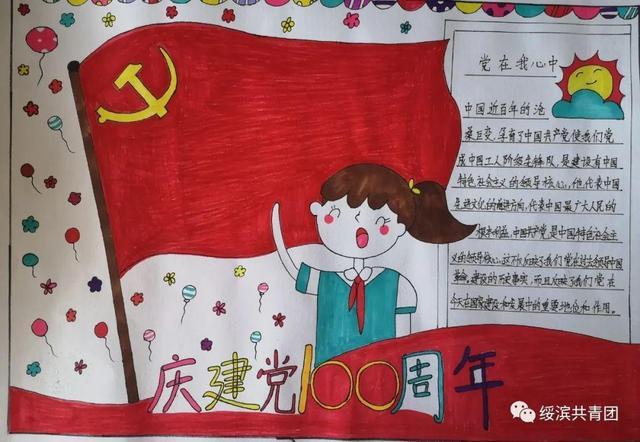 党在我心中
中国近百年的沧
桑巨变,孕育了中国共产党使我们党
成中国工人阶级先锋队,是建设有中国
特色社会主义的领导核心,他代表中国
先进文化的前进方向,代表中国最广大人民的
根本利益,中国共产党是中国特色社会主
义的领导核心,这不仅反映了我们党在过去领导中国
革命,建设的历史事实,而且反映了我们党在
今天在国家建设和发展中的重要地位和作用。
庆建党100周年
绥滨共青团